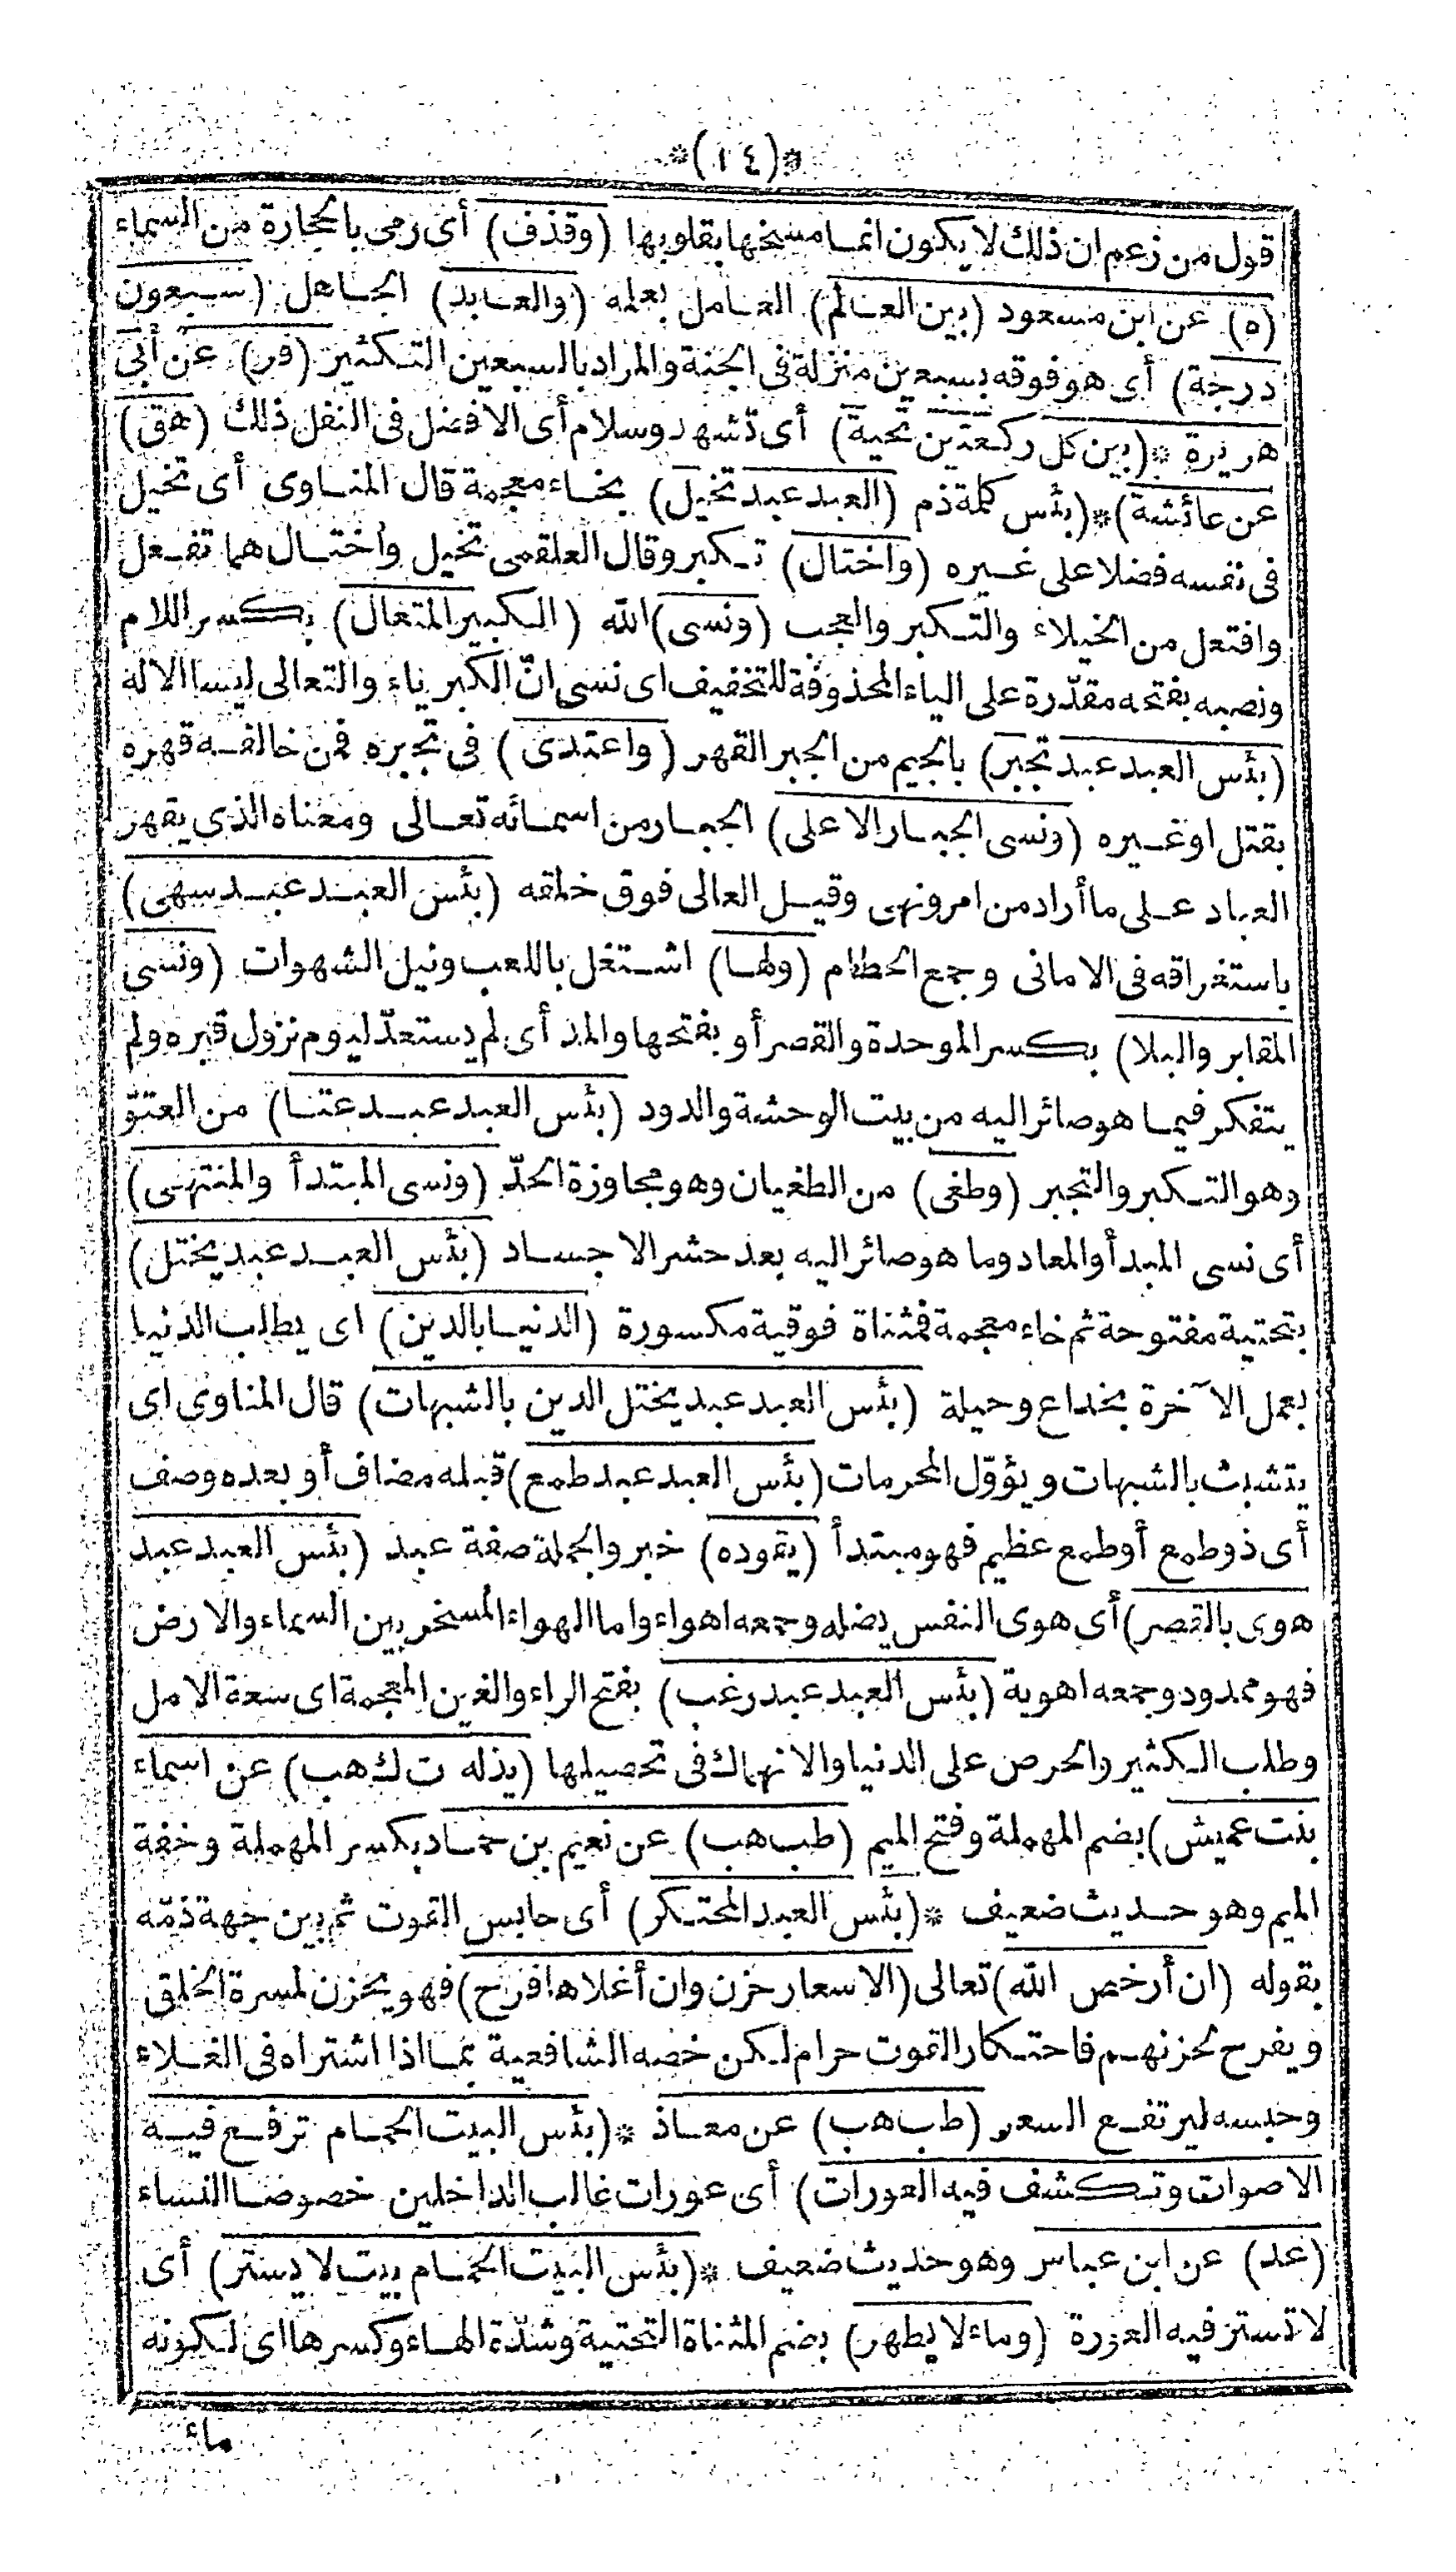 *(١٤)*
قول من زعم ان ذلك لا يكون انما مسخها بقلوبها (وقذف) أى رمى بالحجارة من السماء
(ه) عن ابن مسعود (بين العالم) العامل بعلمه (والعابد) الجاهل (سبعون
درجة) أى هو فوقه بسبعين منزلة فى الجنة والمراد بالسبعين التكثير (فر) عن أبى
هريرة *(بين كل ركعتين تحية) أى تشهد وسلام أى الافضل فى النفل ذلك (هق)
عن عائشة)*(بئس كلمة ذم (العبد عبد تخيل) بخاء معجمة قال المناوى أى تخيل
فى نفسه فضلا على غيره (واختال) تكبر وقال العلقمى تخيل واختال هما تفعل
وافتعل من الخيلاء والتكبر والعجب (ونسى) الله (الكبير المتعال) بكسر اللام
ونصبه بفتحه مقدّرة على الياء المحذوفة للتخفيف اى نسى انّ الكبرياء والتعالى ليسا الا له
(بئس العبد عبد تجبر) بالجيم من الجبر القهر (واعتدى) فى تجبره فمن خالفه قهره
بقتل او غيره (ونسى الجبار الاعلى) الجبار من اسمائه تعالى ومعناه الذي يقهر
العباد على ما أراد من امر ونهى وقيل العالى فوق خلقه (بئس العبد عبد سهى)
باستغراقه فى الامانى وجمع الحطام (ولها) اشتغل باللعب ونيل الشهوات (ونسى
المقابر والبلا) بكسر الموحدة والقصر أو بفتحها والمد أى لم يستعدّ ليوم نزول قبره ولم
يتفكر فيما هو صائر اليه من بيت الوحشة والدود (بئس العبد عبد عتا) من العتوّ
وهو التكبر والتجبر (وطغى) من الطغيان وهو مجاوزة الحدّ (ونسى المبتدأ والمنتهى)
أى نسى المبدأ والمعاد وما هو صائر اليه بعد حشر الاجساد (بئس العبد عبد يختل)
بتحتية مفتوحة ثم خاء معجمة فمثناة فوقية مكسورة (الدنيا بالدين) اى يطلب الدنيا
بعمل الآخرة بخداع وحيلة (بئس العبد عبد يختل الدين بالشبهات) قال المناوى اى
يتشبث بالشبهات ويؤوّل المحرمات (بئس العبد عبد طمع) قبله مضاف أو بعده وصف
أى ذو طمع أو طمع عظيم فهو مبتدأ (يقوده) خبر والجملة صفة عبد (بئس العبد عبد
هوى بالقصر) أى هوى النفس يضله وجمعه اهواء واما الهواء المسخر بين السماء والارض
فهو ممدود وجمعه اهوية (بئس العبد عبد رغب) بفتح الراء والغين المعجمة اى سعة الامل
وطلب الكثير والحرص على الدنيا والانهماك فى تحصيلها (يذله ت ك هب) عن اسماء
بنت عميش) بضم المهملة وفتح الميم (طب هب) عن نعيم بن حماد بكسر المهملة وخفة
الميم وهو حديث ضعيف *(بئس العبد المحتكر) أى حابس القوت ثم بين جهة ذمّه
بقوله (ان أرخص الله) تعالى (الاسعار حزن وان أغلاها فرح) فهو يحزن لمسرة الخلق
ويفرح لحزنهم فاحتكار القوت حرام لكن خصه الشافعية بما اذا اشتراه فى الغلاء
وحبسه ليرتفع السعر (طب هب) عن معاذ *(بئس البيت الحمام ترفع فيه
الاصوات وتكشف فيه العورات) أى عورات غالب الداخلين خصوصا النساء
(عد) عن ابن عباس وهو حديث ضعيف *(بئس البيت الحمام بيت لا يستر) أى
لا تستر فيه العورة (وماء لا يطهر) بضم المثناة التحتية وشدّة الهاء وكسرها اى لكونه
مائه